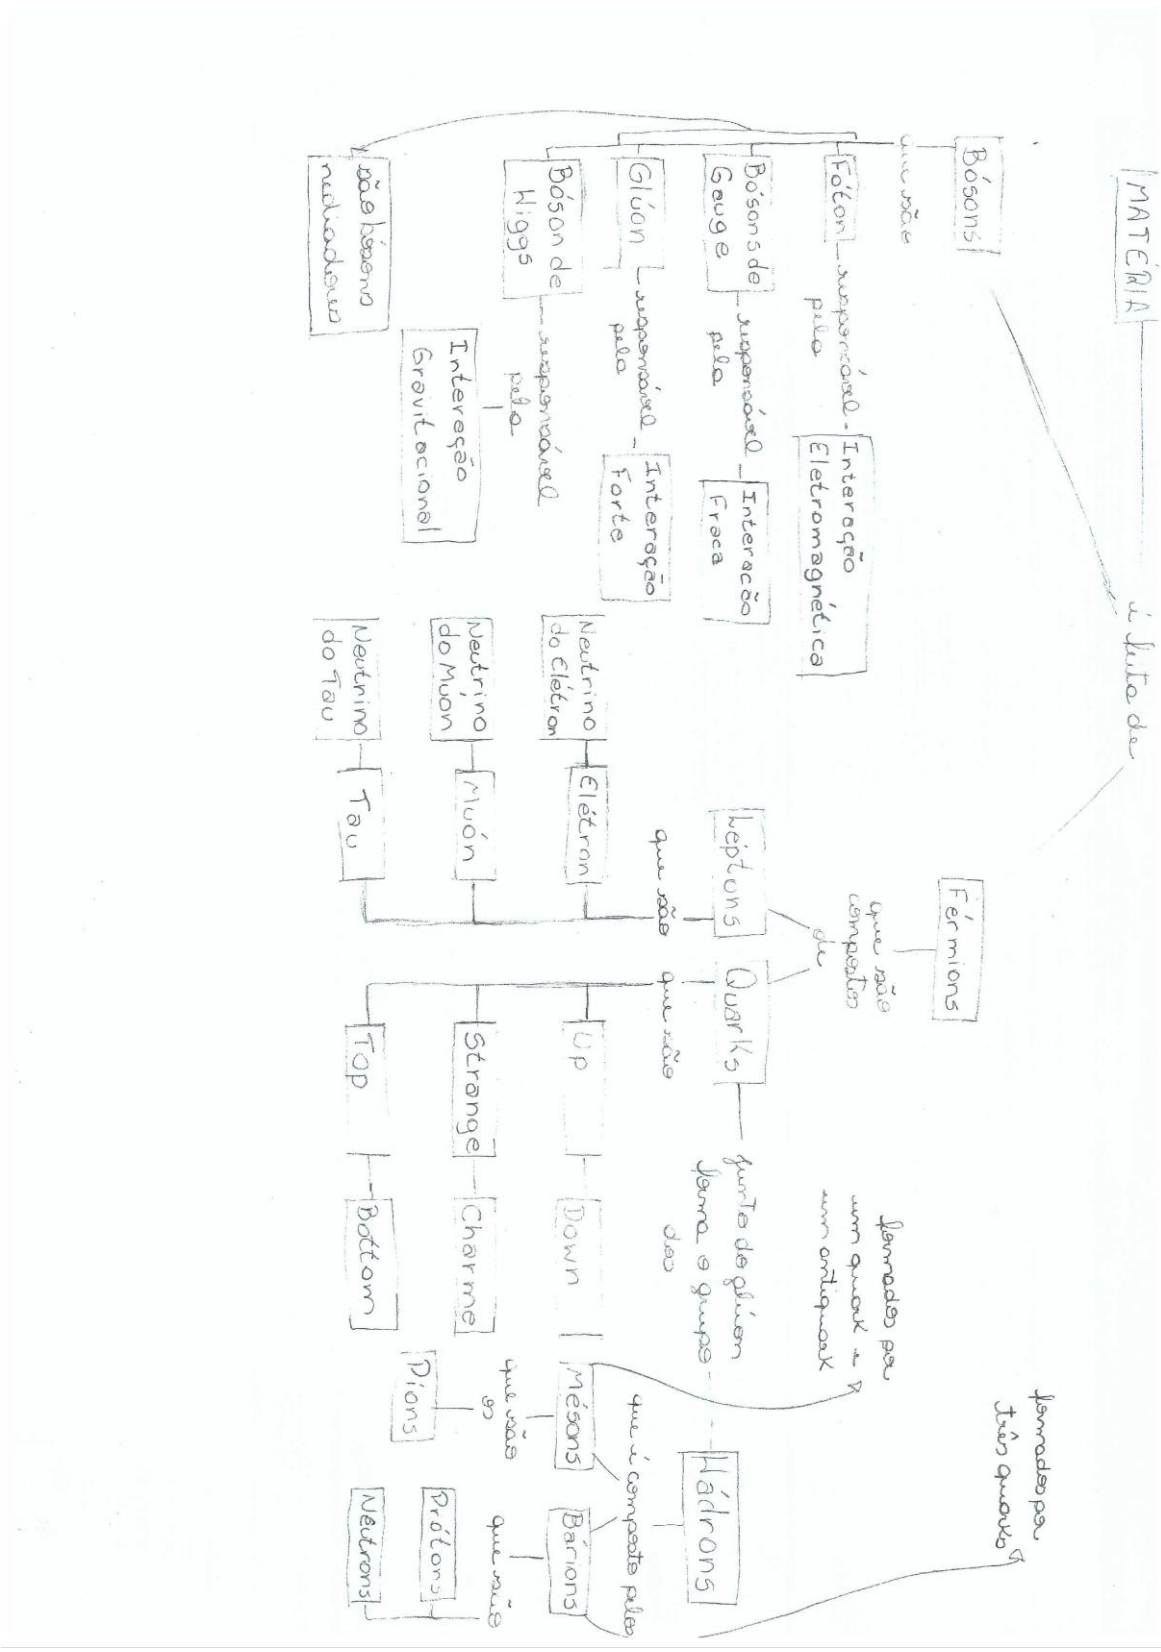 MATÉRIA
é feita de
Bósons
que são
Fóton
responsável
pela
Interação
Eletromagnética
Bósons de
Gauge
responsável
pela
Interacão
Fraca
Glúon
responsável
pela
Interação
Forte
Bóson de
Higgs
responsável
pela
Interação
Gravitacional
são bósons
mediadores
Férmions
que são
compostos
de
Léptons
que são
Elétron
Neutrino
do Elétron
Muón
Neutrino
do Muón
Tau
Neutrino
do Tau
Quarks
que são
Up
Down
Strange
Charme
Top
Bottom
junto do glúon
forma o grupo
dos
Hádrons
que é composto pelos
Mésons
formados por
um quark e
um antiquark
que são
os
Píons
Bárions
formados por
três quarks
que são
Prótons
Nêutrons